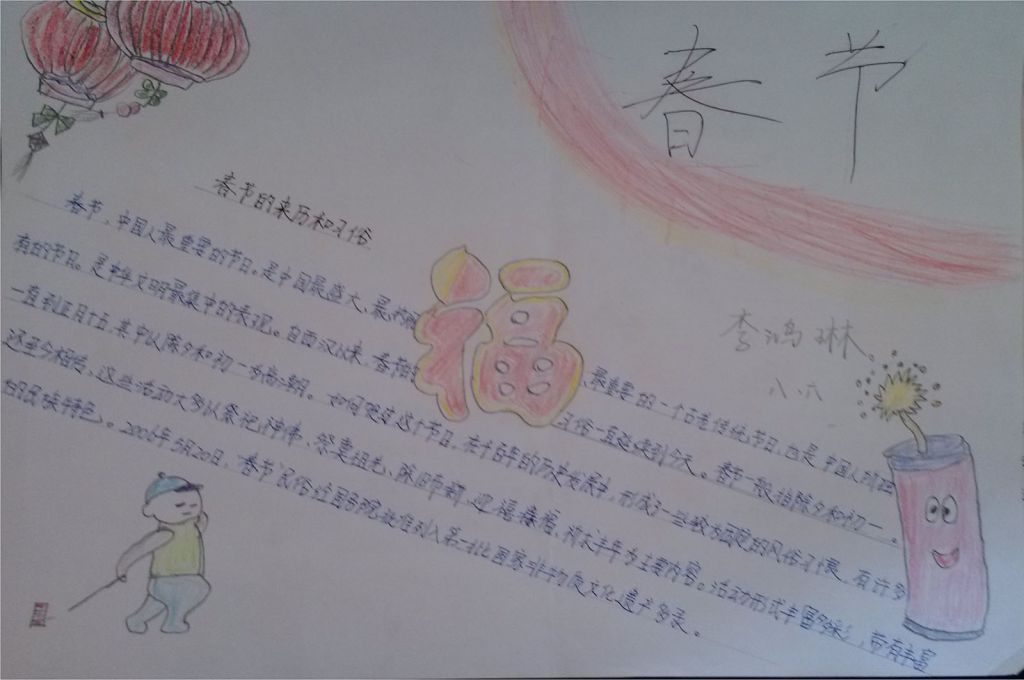 春节
春节的来历和习俗
李鸿琳
八.六
春节,中国人最重要的节日。是中国最盛大、最热闹、最重要的一个古老传统节日,也是中国人所独
有的节日。是中华文明最集中的表现。自西汉以来,春节的习俗一直延续到今天。春节一般指除夕和初一。
一直到正月十五,其中以除夕和初一为高潮。如何庆贺这个节日,在千百年的历史发展中,形成了一些较为固定的风俗习惯,有许多
还至今相传,这些活动大多以祭祀神佛、祭奠祖先、除旧布新、迎禧接福、祈求丰年为主要内容。活动形式丰富多彩,带有丰富
的民族特色。2006年5月20日,“春节”民俗经国务院批准列入第一批国家非物质文化遗产名录。
福